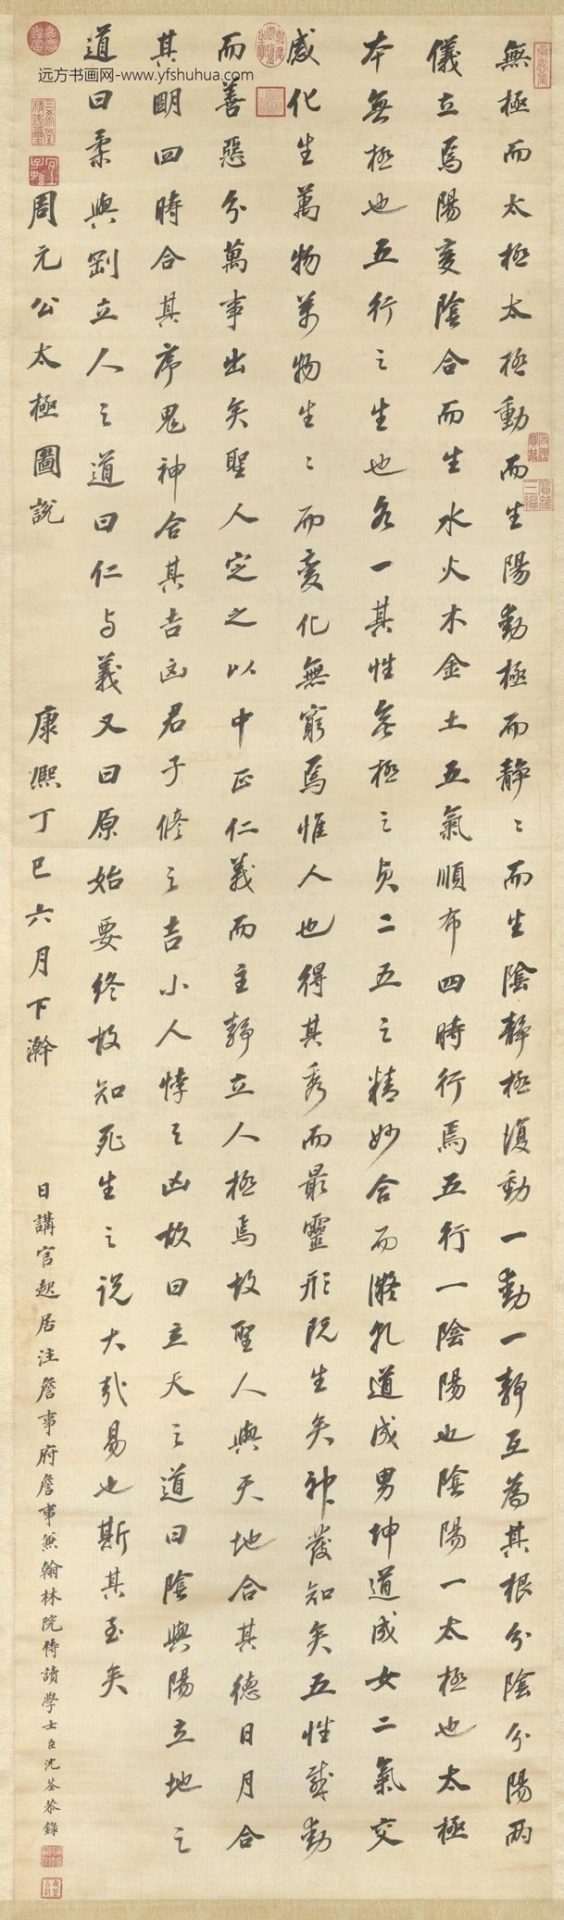 無極而太極太極動而生陽動極而静〻而生陰静極復動一動一静互為其根分陰分陽兩
儀立焉陽变陰合而生水火木金土五氣順布四時行焉五行一陰陽也陰陽一太極也太極
本無極也五行之生也各一其性無極之真二五之精妙合而凝乹道成男坤道成女二氣交
感化生萬物萬物生〻而变化無窮焉惟人也得其秀而最靈形既生矣神發知矣五性感動
而善惡分萬事出矣聖人定之以中正仁義而主静立人極焉故聖人與天地合其德日月合
其明四時合其序鬼神合其吉凶君子修之吉小人悖之凶故曰立天之道曰陰與陽立地之
道曰柔與剛立人之道曰仁与義又曰原始要終故知死生之说大哉易也斯其至矣
周元公太極圖說
康熙丁巳六月下澣
日講官起居注詹事府詹事兼翰林院侍讀學士臣沈荃恭錄
远方书画网-www.yfshuhua.com